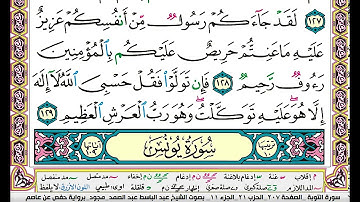 ١٢٧ لَقَدْ جَاءَكُمْ رَسُولٌ مِّنْ أَنفُسِكُمْ عَزِيزٌ
عَلَيْهِ مَا عَنِتُّمْ حَرِيصٌ عَلَيْكُم بِالْمُؤْمِنِينَ
رَءُوفٌ رَّحِيمٌ ١٢٨ فَإِن تَوَلَّوْا فَقُلْ حَسْبِيَ اللَّهُ لَا إِلَٰهَ
إِلَّا هُوَ عَلَيْهِ تَوَكَّلْتُ وَهُوَ رَبُّ الْعَرْشِ الْعَظِيمِ ١٢٩
سُورَةُ يُونُسَ
سورة التوبة - الصفحة ٢٠٧ - الحزب ٢١ - الجزء ١١ - بصوت الشيخ عبد الباسط عبد الصمد - مجود - برواية حفص عن عاصم